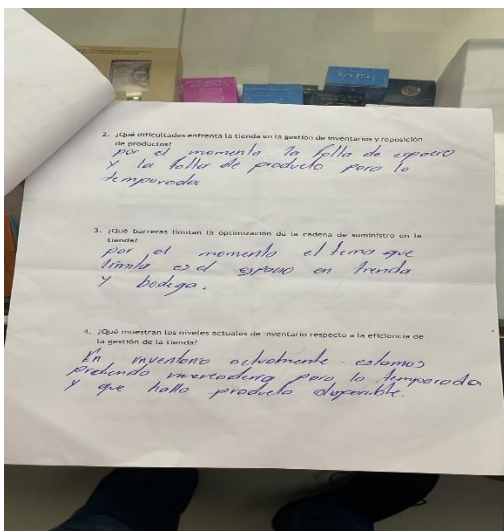 2. ¿Qué dificultades enfrenta la tienda en la gestión de inventarios y reposición
de productos?
por el momento la falla de espacio
y la falla de producto para la
temporada
3. ¿Qué barreras limitan la optimización de la cadena de suministro en la
tienda?
por el momento el tema que
limita es el espacio en tienda
y bodega.
4. ¿Qué muestran los niveles actuales de inventario respecto a la eficiencia de
la gestión de la tienda?
En inventario actualmente estamos
pidiendo mercaderia para la temporada
y que hallo producto disponible.